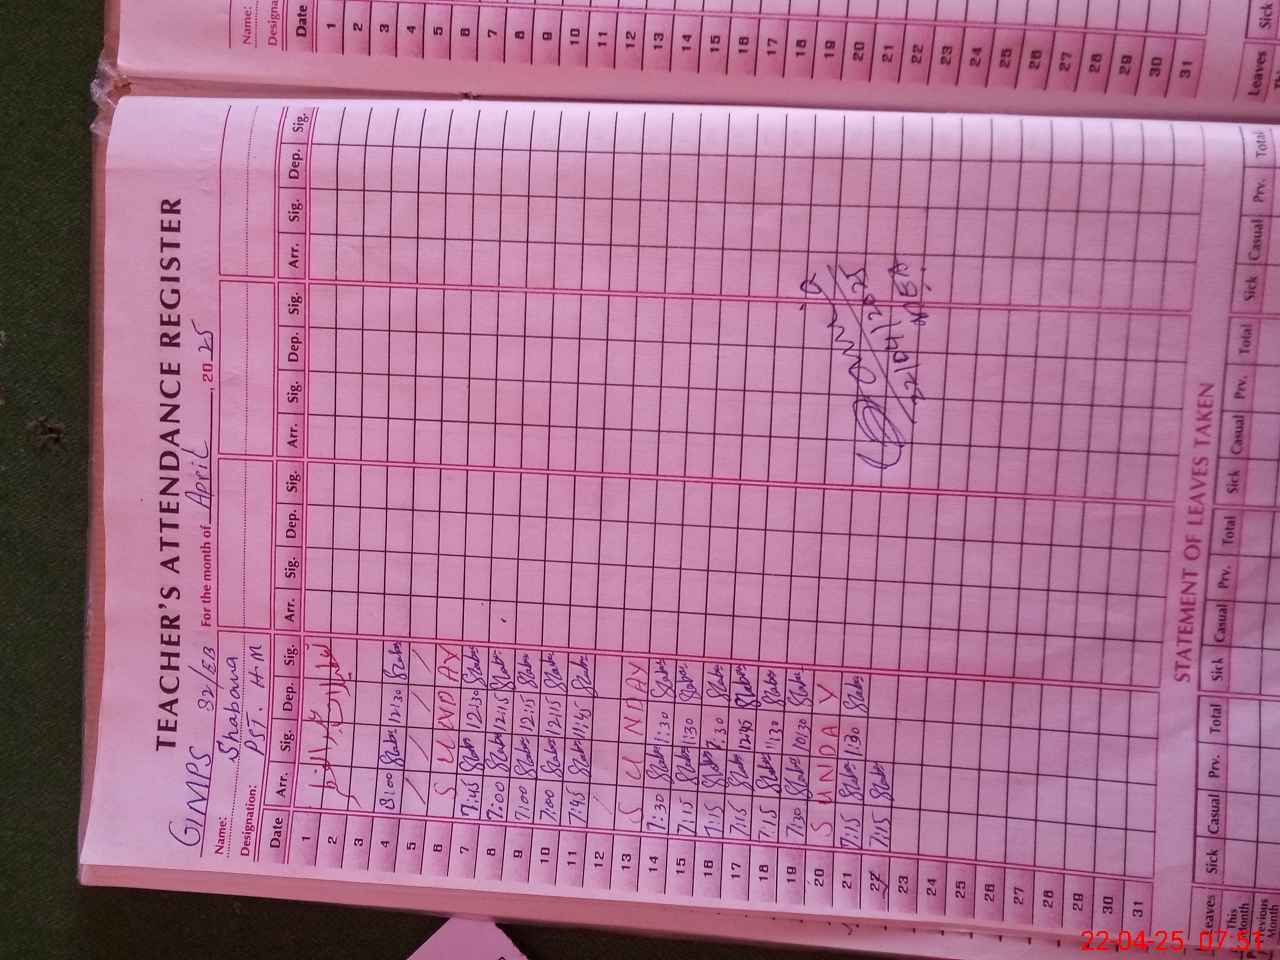 TEACHER'S ATTENDANCE REGISTER
GIMPS 32/EB For the month of April, 2025
Name: Shabana
Designation: PST. H.M
Date Arr. Sig. Dep. Sig. Arr. Sig. Dep. Sig. Arr. Sig. Dep. Sig. Arr. Sig. Dep. Sig.
1
2
3
4 8:00 Shabs 12:30 Shabs
5
6 SUNDAY
7 7:45 Shabs 12:30 Shabs
8 7:00 Shabs 12:15 Shabs
9 7:00 Shabs 12:15 Shabs
10 7:00 Shabs 12:15 Shabs
11 7:45 Shabs 11:45 Shabs
12
13 SUNDAY
14 7:30 Shabs 1:30 Shabs
15 7:15 Shabs 1:30 Shabs
16 7:15 Shabs 1:30 Shabs
17 7:15 Shabs 12:45 Shabs
18 7:15 Shabs 11:30 Shabs
19 7:30 Shabs 10:30 Shabs
20 SUNDAY
21 7:15 Shabs 1:30 Shabs
22 7:15 Shabs
22/04/2025
MEA
23
24
25
26
27
28
29
30
31
STATEMENT OF LEAVES TAKEN
Leaves Sick Casual Prv. Total Sick Casual Prv. Total Sick Casual Prv. Total Sick Casual Prv. Total
This Month
Previous Month
Name:
Designa
Date
1
2
3
4
5
6
7
8
9
10
11
12
13
14
15
16
17
18
19
20
21
22
23
24
25
26
27
28
29
30
31
Leaves Sick
22-04-25 07:51